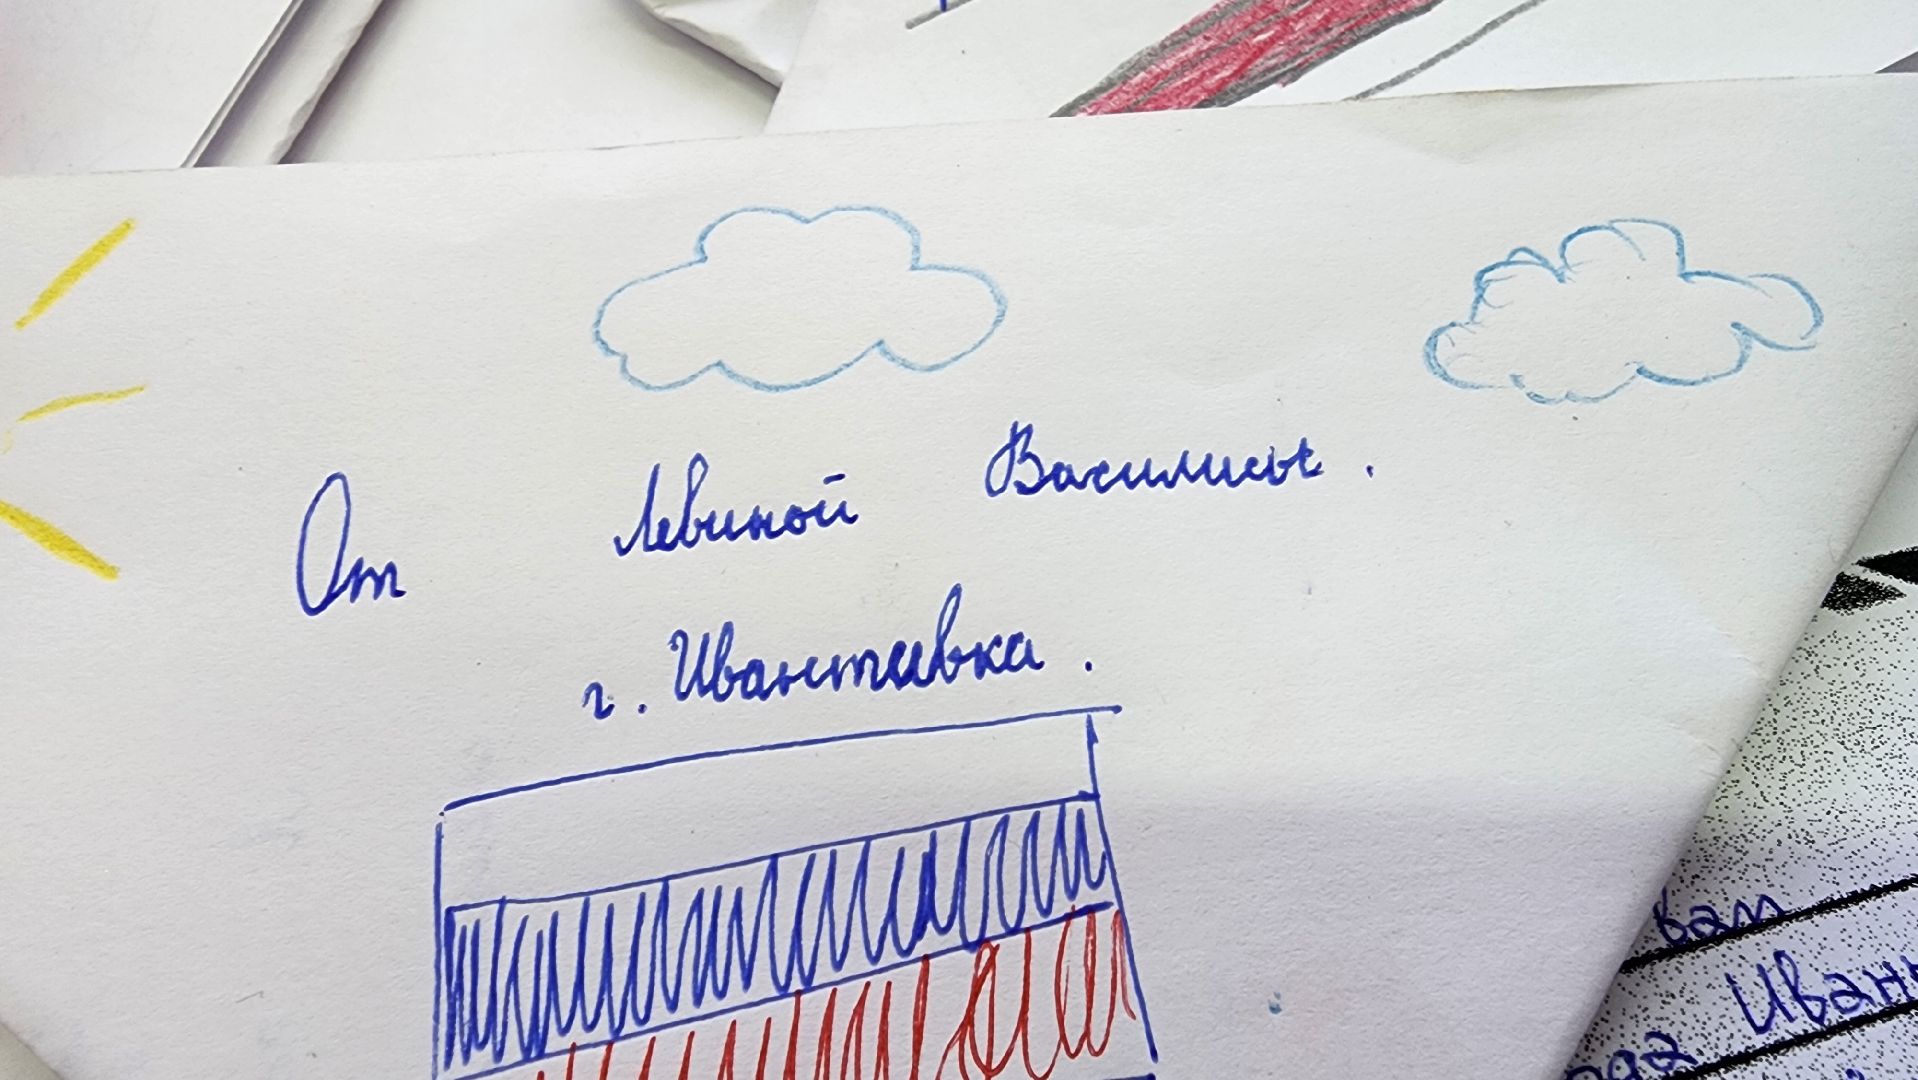 От Левиной Василисы.
г. Ивантеевка.
вам
Иван